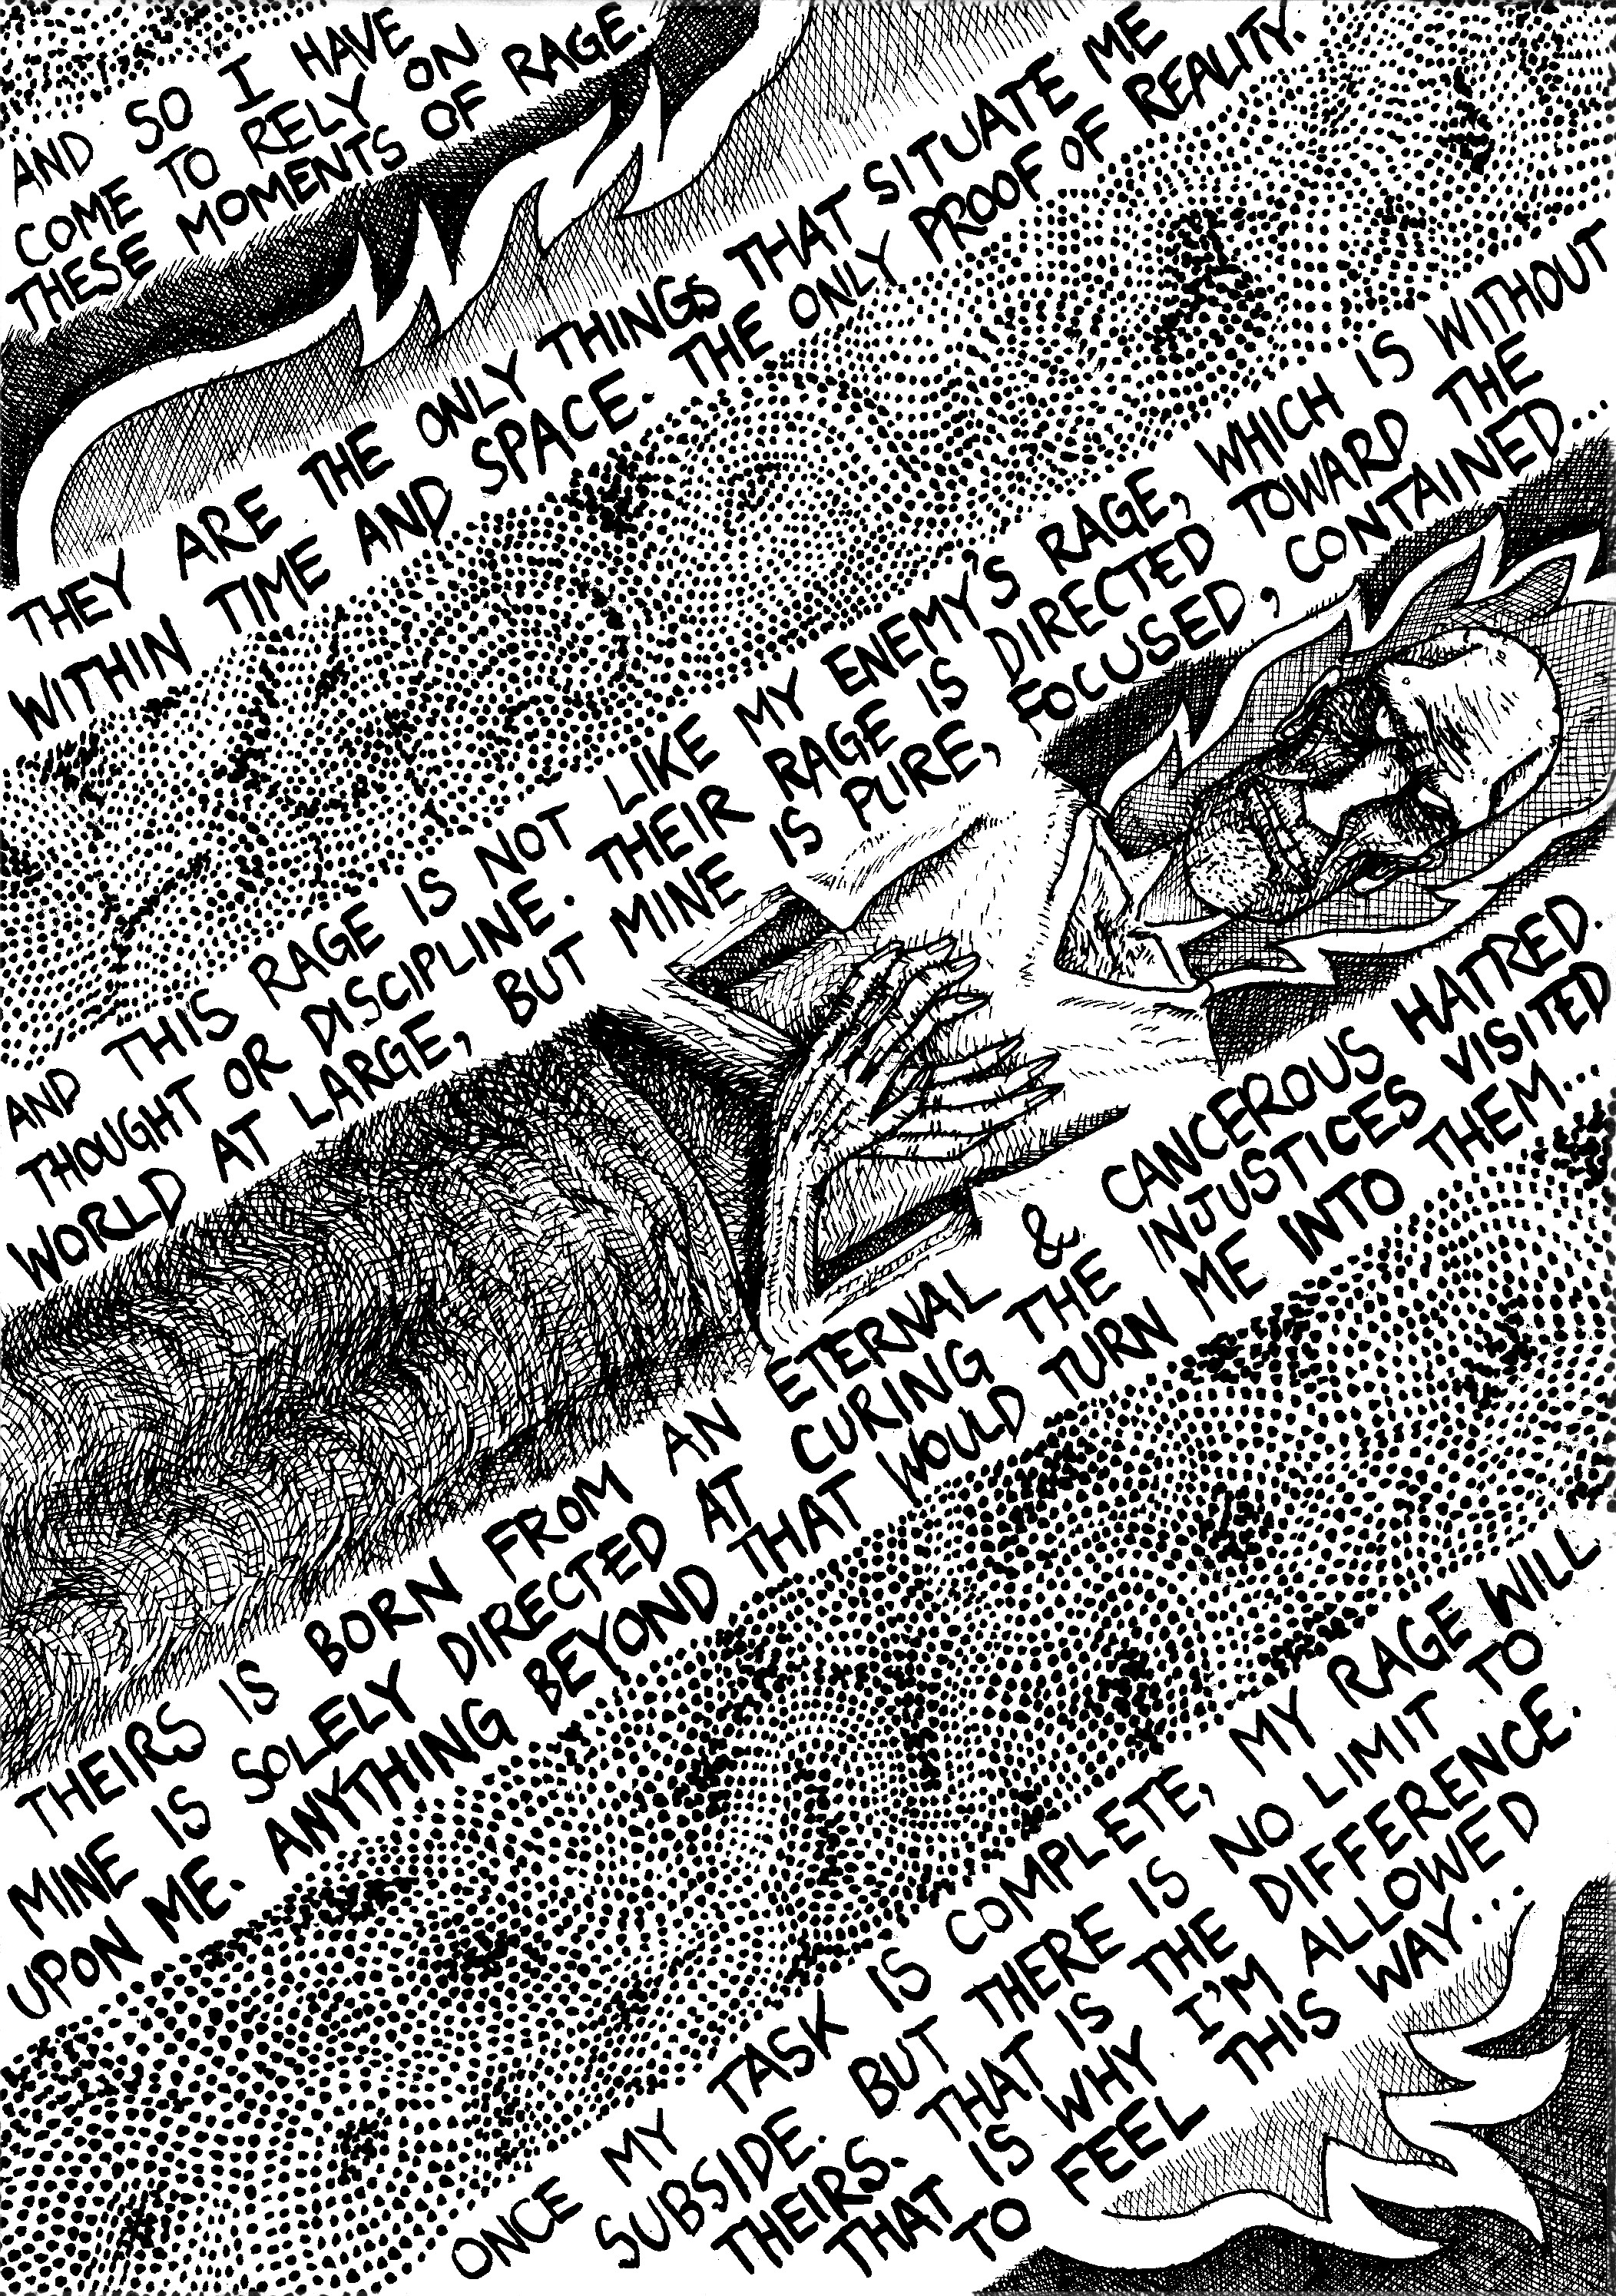 AND SO I HAVE
COME TO RELY ON
THESE MOMENTS OF RAGE.
THEY ARE THE ONLY THINGS THAT SITUATE ME
WITHIN TIME AND SPACE. THE ONLY PROOF OF REALITY.
AND THIS RAGE IS NOT LIKE MY ENEMY'S RAGE, WHICH IS WITHOUT
THOUGHT OR DISCIPLINE. THEIR RAGE IS DIRECTED TOWARD THE
WORLD AT LARGE, BUT MINE IS PURE, FOCUSED, CONTAINED...
THEIRS IS BORN FROM AN ETERNAL & CANCEROUS HATRED.
MINE IS SOLELY DIRECTED AT CURING THE INJUSTICES VISITED
UPON ME. ANYTHING BEYOND THAT WOULD TURN ME INTO THEM...
ONCE MY TASK IS COMPLETE, MY RAGE WILL
SUBSIDE. BUT THERE IS NO LIMIT TO
THEIRS. THAT IS THE DIFFERENCE.
THAT IS WHY I'M ALLOWED
TO FEEL THIS WAY...